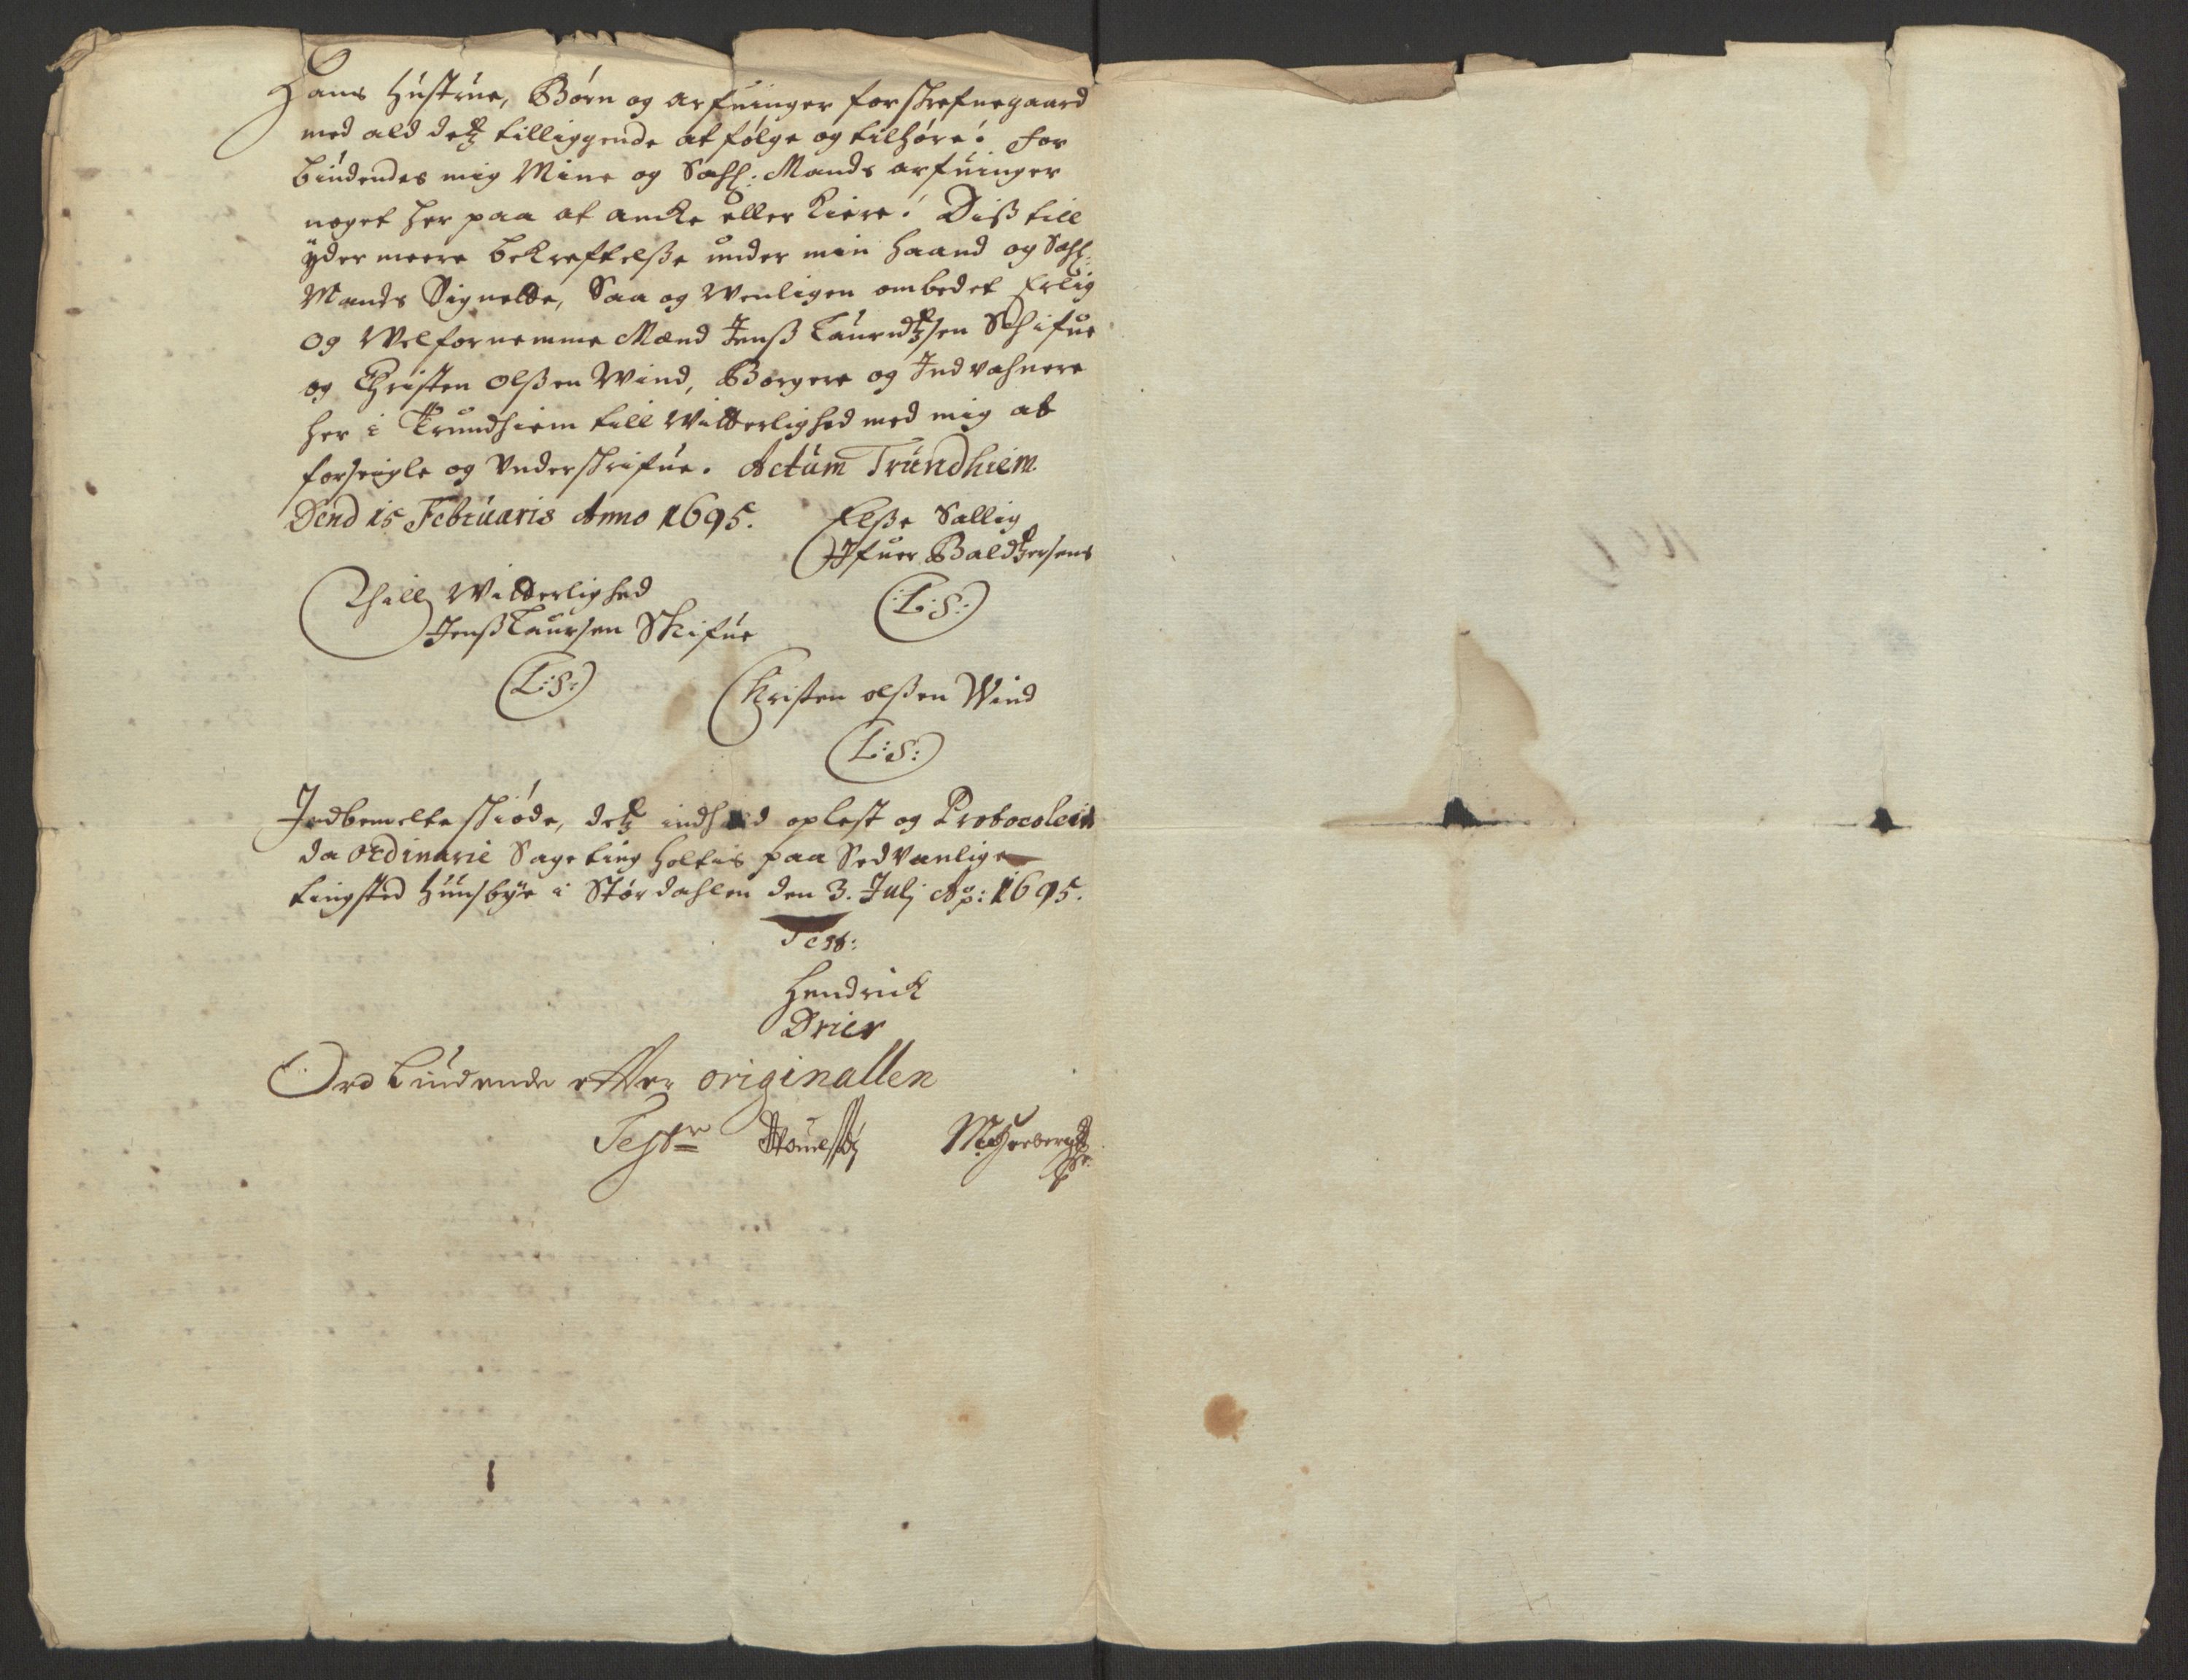 Hans Hustrue, Børn og arfuinger forschrefne gaard
med ald detz tilliggende at følge og tilhøre: for
bindendes mig Mine og Sahl: Mands arfuinger
noget her paa at ancke eller kiere: Diß till
ÿdermeere bekreftelße under min haand og Sahl:
Mands Signette, Saa og Wenligen ombedet Erlig
og Welfornemme Mænd Jenß Lauridtzsen Schifue
og Christen Olßen Wind, Borgere og Indvahnere
her i Trundhiem till Witterlighed med mig at
forseigle og Underschrifue. Actum Trundhiem
Dend 15 Februaris Anno 1695. Elße Sallig
Ifuer Baldtzersens
Thill Witterlighed (:L:S:)
Jenß Laursen Skifue
(L:S:) Christen olßen Wind
(L:S:)
Indbemelte schiøde, detz indhold oplest og Protocolerit
da ordinarie Sageting holtis paa Sedvanlige
tingsted Hunsbÿe i Størdahlen den 3. Julj Ao: 1695.
Test:
Hendrick
Drier
Ord Liudende effter originallen
Test